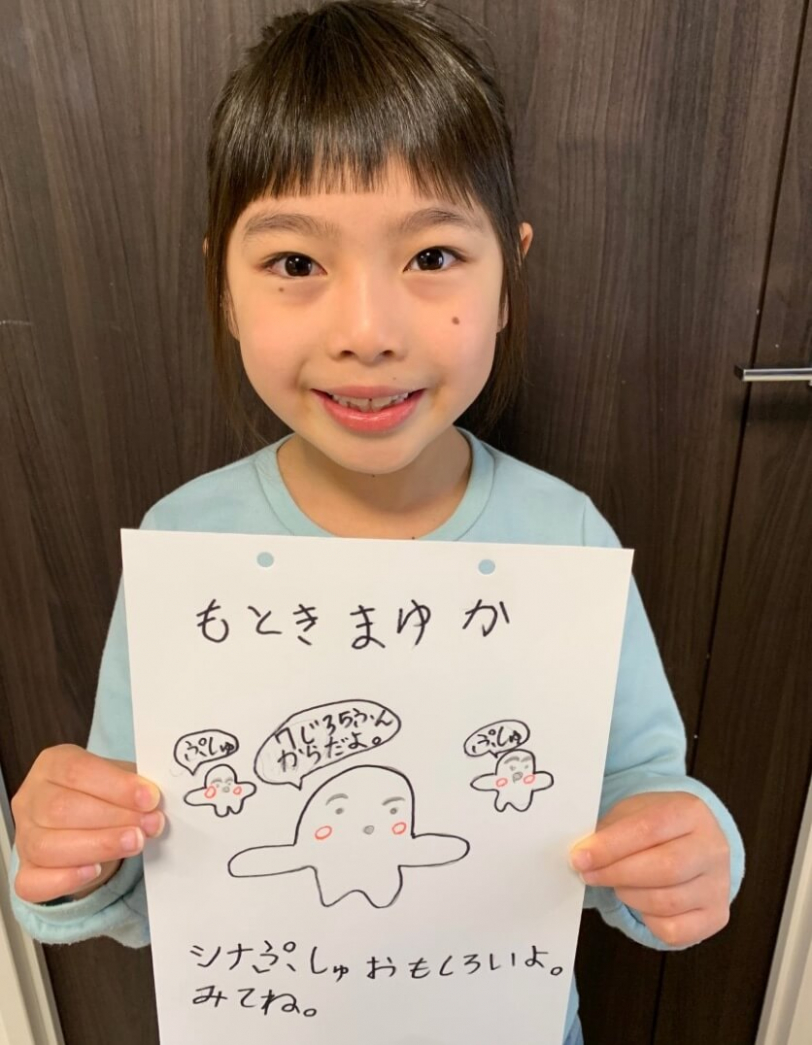 もときまゆか
ぷしゅ
7じ35ふん
からだよ。
ぷしゅ
シナぷしゅおもしろいよ。
みてね。